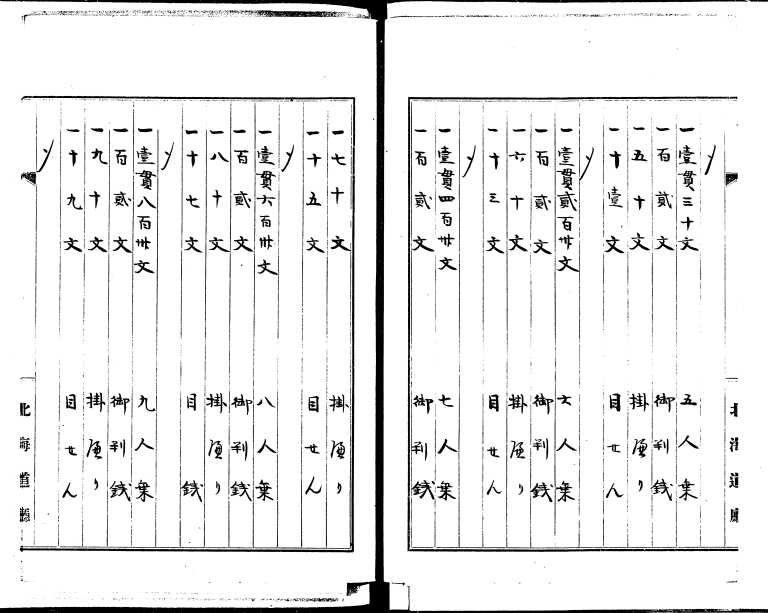 〆
一壹貫三十文 五人乗
一百貳文 御判銭
一五十文 掛屋り
一十壹文 目せん
〆
一壹貫貳百卅文 六人乗
一百貳文 御判銭
一六十文 掛屋り
一十三文 目せん
〆
一壹貫四百卅文 七人乗
一百貳文 御判銭
一七十文 掛屋り
一十五文 目せん
〆
一壹貫六百卅文 八人乗
一百貳文 御判銭
一八十文 掛屋り
一十七文 目銭
〆
一壹貫八百卅文 九人乗
一百貳文 御判銭
一九十文 掛屋り
一十九文 目せん
〆
北海道廳
北海道廳